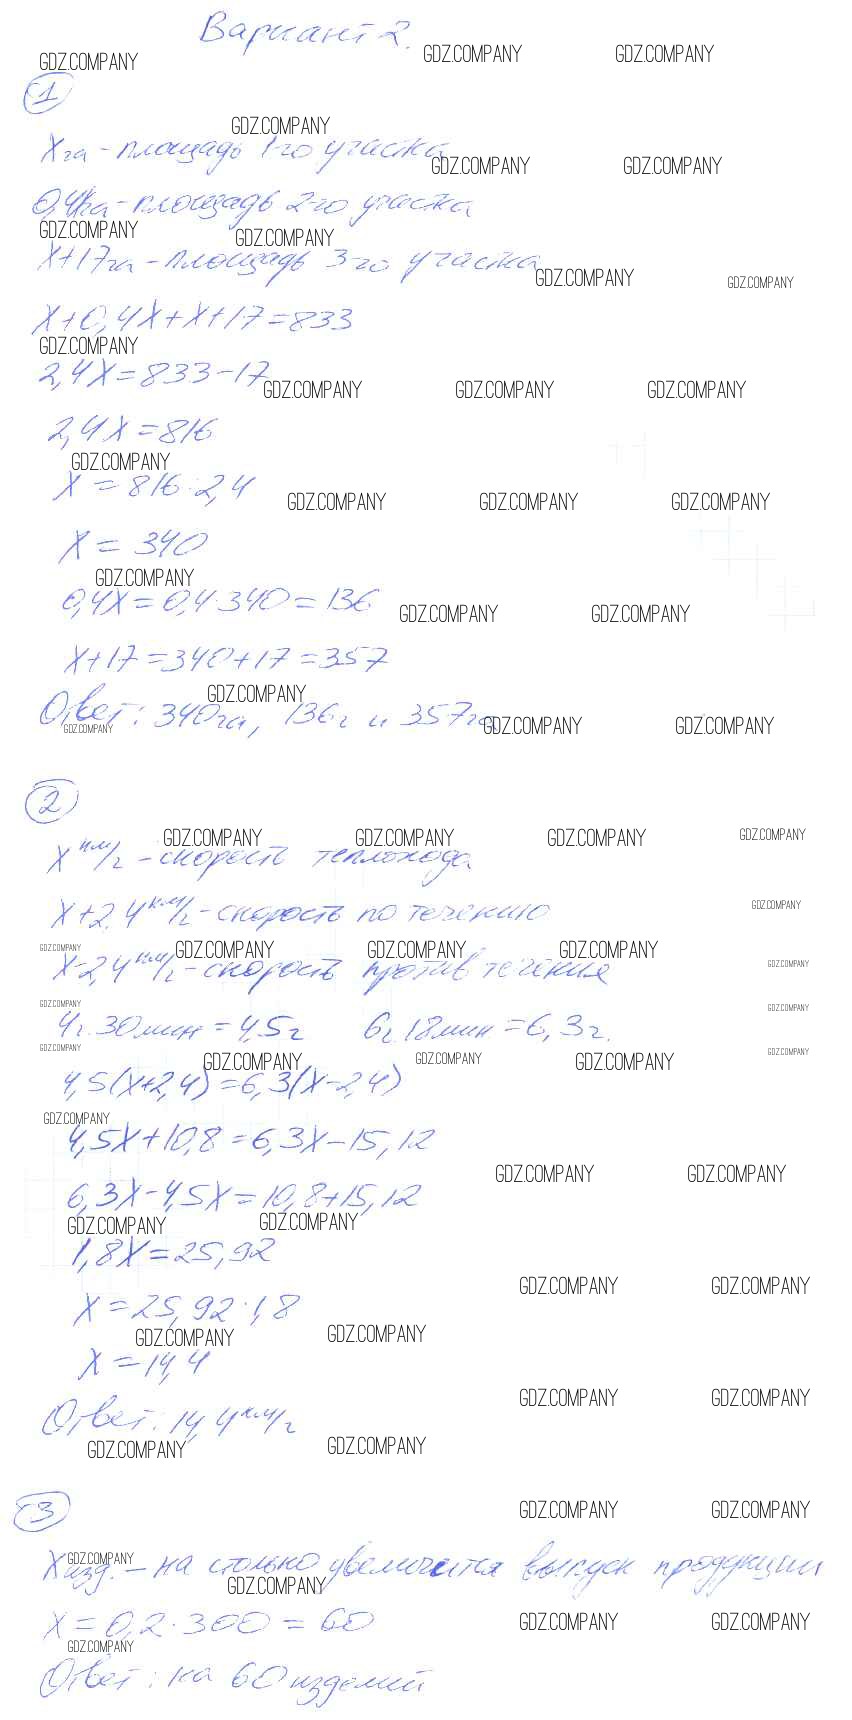 Вариант 2.
GDZ.COMPANY GDZ.COMPANY GDZ.COMPANY
1
GDZ.COMPANY
Xга - площадь 1-го участка
GDZ.COMPANY GDZ.COMPANY
0,4Xга - площадь 2-го участка
GDZ.COMPANY GDZ.COMPANY
X+17га - площадь 3-го участка
GDZ.COMPANY GDZ.COMPANY
X+0,4X+X+17=833
GDZ.COMPANY
2,4X=833-17
GDZ.COMPANY GDZ.COMPANY GDZ.COMPANY
2,4X=816
GDZ.COMPANY
X=816:2,4
GDZ.COMPANY GDZ.COMPANY GDZ.COMPANY
X=340
GDZ.COMPANY
0,4X=0,4·340=136
GDZ.COMPANY GDZ.COMPANY
X+17=340+17=357
GDZ.COMPANY
Ответ: 340га, 136г и 357га
GDZ.COMPANY GDZ.COMPANY GDZ.COMPANY
2
GDZ.COMPANY GDZ.COMPANY GDZ.COMPANY GDZ.COMPANY
X км/г - скорость теплохода
GDZ.COMPANY
X+2,4 км/г - скорость по течению
GDZ.COMPANY GDZ.COMPANY GDZ.COMPANY GDZ.COMPANY
X-2,4 км/г - скорость против течения
GDZ.COMPANY
GDZ.COMPANY GDZ.COMPANY
4г. 30мин = 4,5г 6г. 18мин = 6,3г.
GDZ.COMPANY GDZ.COMPANY
GDZ.COMPANY GDZ.COMPANY GDZ.COMPANY
4,5(X+2,4)=6,3(X-2,4)
GDZ.COMPANY
4,5X+10,8=6,3X-15,12
GDZ.COMPANY GDZ.COMPANY
6,3X-4,5X=10,8+15,12
GDZ.COMPANY GDZ.COMPANY
1,8X=25,92
GDZ.COMPANY GDZ.COMPANY
X=25,92:1,8
GDZ.COMPANY GDZ.COMPANY
X=14,4
GDZ.COMPANY GDZ.COMPANY
Ответ: 14,4 км/г
GDZ.COMPANY GDZ.COMPANY
3
GDZ.COMPANY GDZ.COMPANY
GDZ.COMPANY
Xизд. - на столько увеличится выпуск продукции
GDZ.COMPANY
X=0,2·300=60
GDZ.COMPANY GDZ.COMPANY
GDZ.COMPANY
Ответ: на 60 изделий